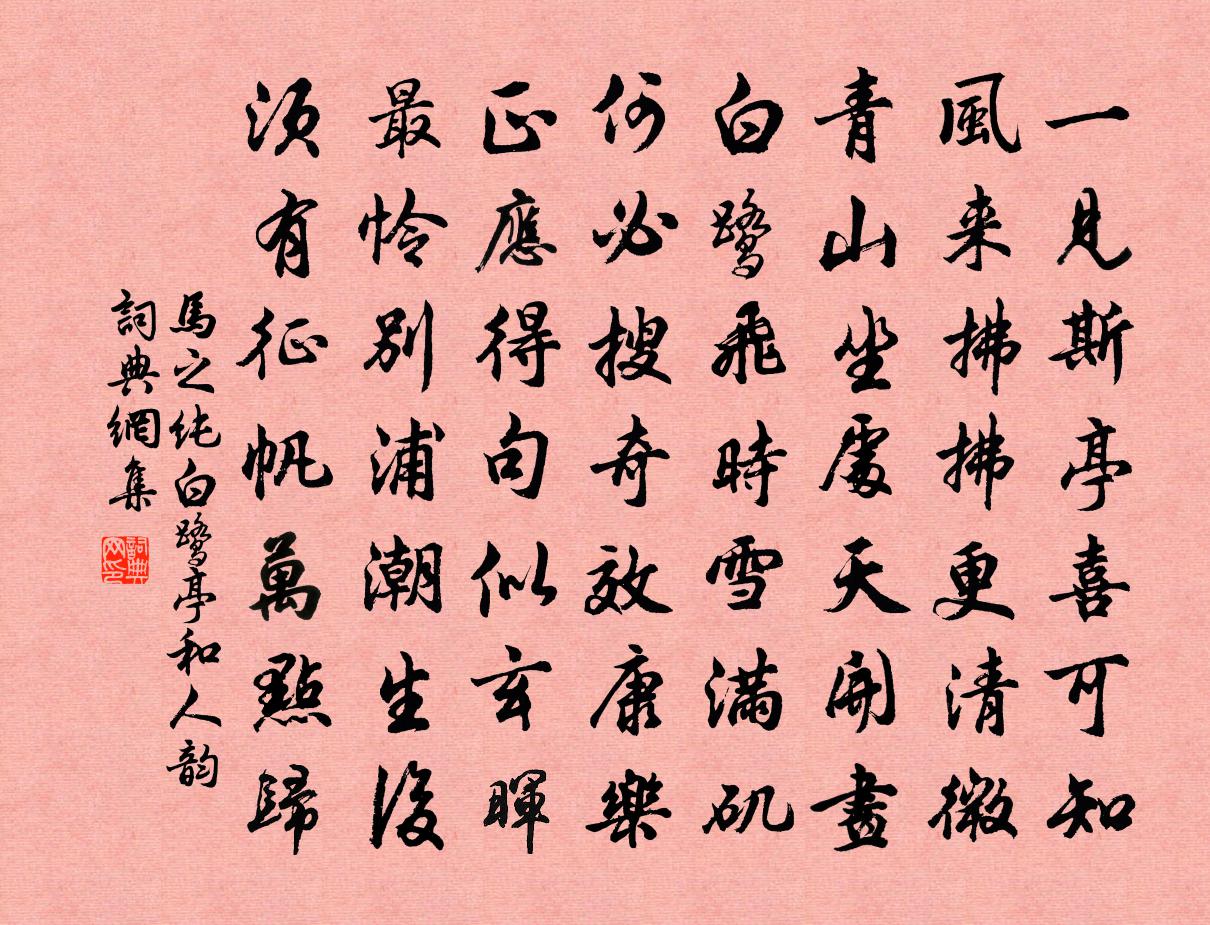 一見斯亭喜可知
風来拂拂更清微
青山坐處天開畫
白鹭飛時雪滿矶
何必搜奇效康樂
正應得句似玄暉
最怜别浦潮生後
須有征帆萬點歸
馬之纯白鹭亭和人韵
詞典網集
詞典网印